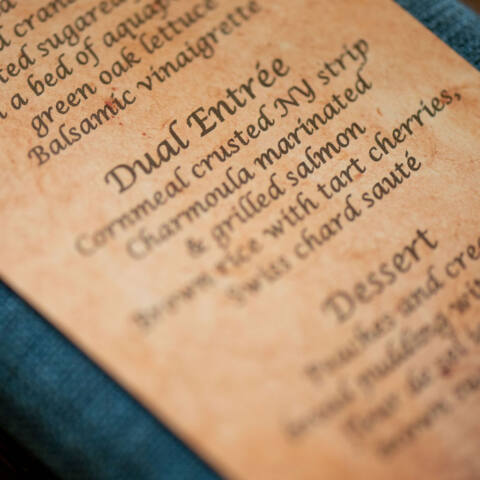 d cran
ted sugared
a bed of aquap
green oak lettuce
Balsamic vinaigrette
Dual Entrée
Cornmeal crusted NY strip
Charmoula marinated
& grilled salmon
Brown rice with tart cherries,
Swiss chard sauté
Dessert
Peaches and crea
bread pudding wi